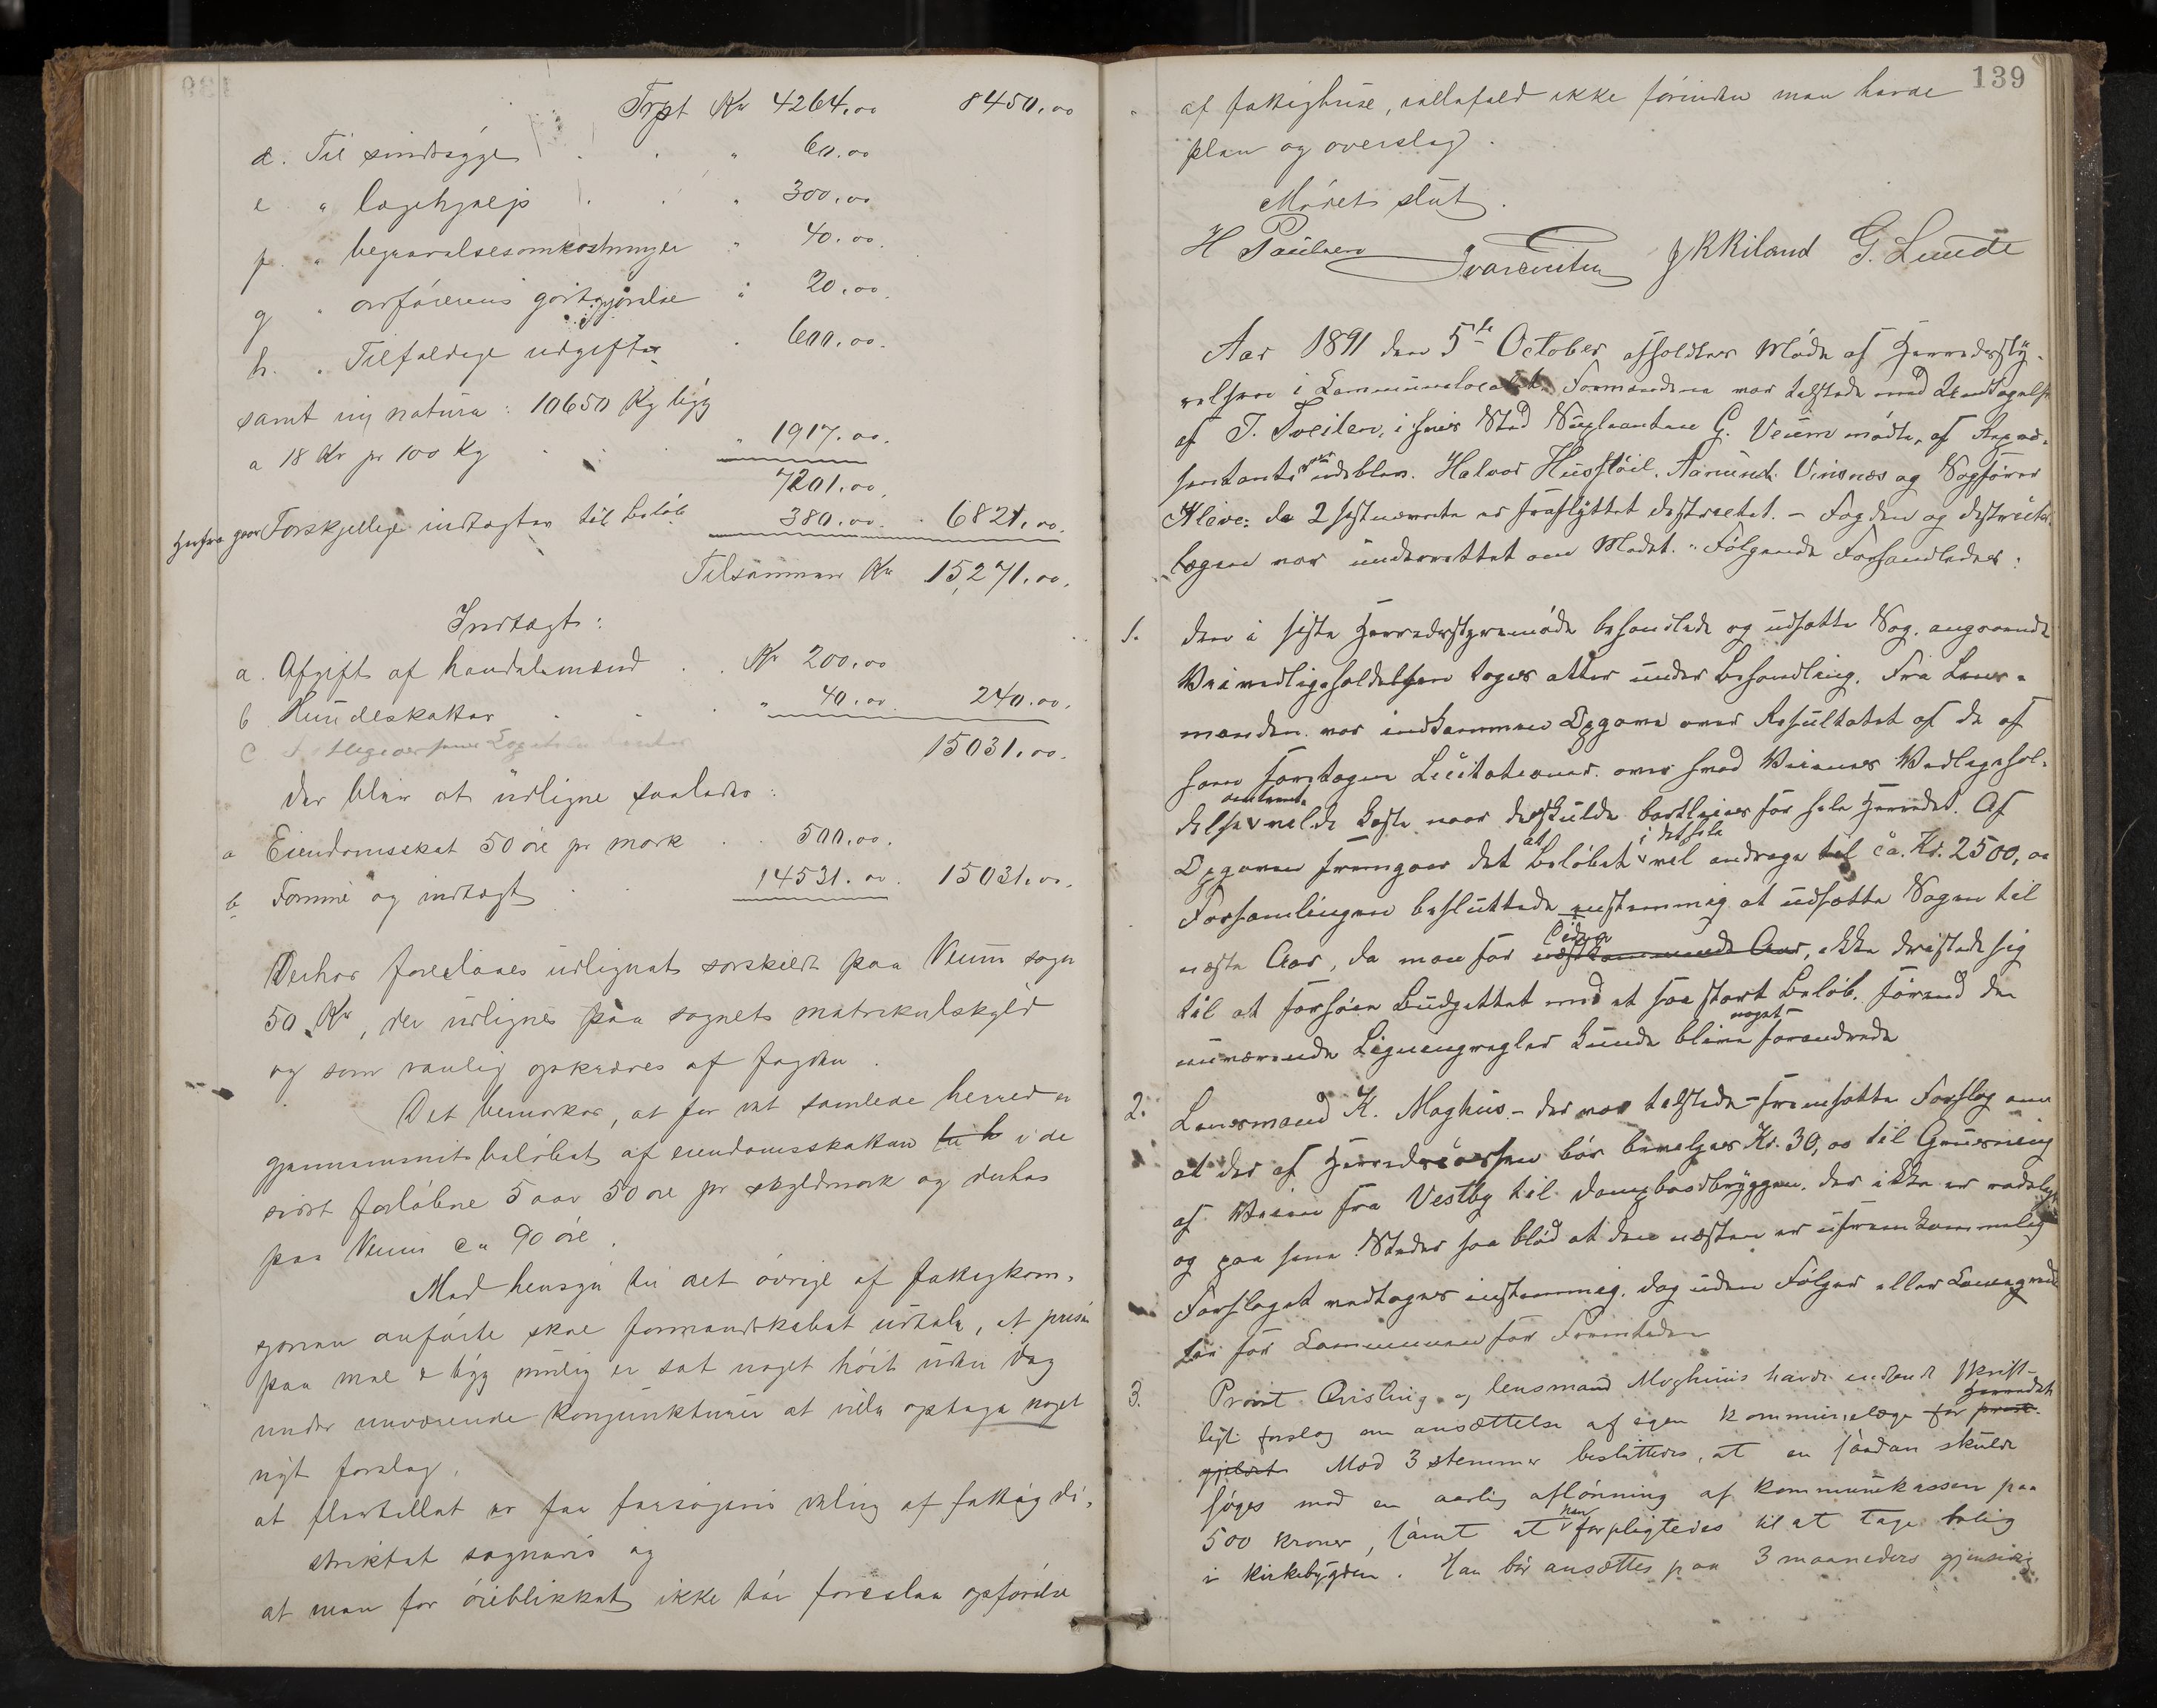 Trpt Kr 4264.00 8450.00
d. Til sindssyge " 60.00
e " lægehjælp " 300.00
f. " begravelsesomkostninger " 40.00.
g " ordførerens godtgjørelse " 20.00.
h. " Tilfældige udgifter " 600.00.
samt in natura: 10650 Kg byg
a 18 Kr pr 100 Kg " 1917.00.
7201.00.
Herfra gaar Forskjellige indtægter til beløb 380.00. 6821.00.
Tilsammen Kr 15,271.00.
Indtægt:
a. Afgift af handelsmænd Kr 200.00
b Hundeskatter " 40.00. 240.00.
c
15031.00.
der bliver at udligne saaledes:
a Eiendomsskat 50 øre pr mark 500.00.
b Formue og indtægt 14531.00. 15031.00.
Derhos foreslaaes udlignet særskildt paa Veum sogn
50 Kr, der udlignes paa sognets matrikulskyld
og som vanlig opkræves af fogden.
Det bemærkes, at for det samlede herred er
gjennemsnitsbeløbet af eiendomsskatten i de
sidst forløbne 5 aar 50 øre pr skyldmark og derhos
paa Veum ca 90 øre.
Med hensyn til det øvrige af fattigkom-
anførte skal formandskabet udtale, at prisen
paa mel & byg mulig er sat noget høit uden dog
under nuværende konjunkturer at ville optage noget
nyt forslag,
at flertallet er for forsøgsvis deling af fattigdi-
striktet sognevis og
at man for øieblikket ikke tør foreslaa opførelse
139
af fattighuse, iallefald ikke förinden man havde
plan og overslag.
Mødet slut.
H Paulsen J K Kiland G. Lunde
Aar 1891 den 5te October afholdtes Møde af Herredssty-
relsen i Communelocalet. Formændene var tilstede med Undtagelse
af T. Tveiten, i hvis Sted Supleanten G. Veum mødte, af Repræ-
sentanterne udeblev. Halvor Aamund Vinsnes og Sagfører
Kleve; de 2 sistnævnte er fraflyttet distrectet. – Fogden og distrikts
lægen var underrettet om Mødet. – Følgende Forhandledes:
1. den i siste Herredsstyremøde behandlede og udsatte Sag, angaaende
Veivedligeholdelsen toges atter under Behandling. Fra Lens-
manden var indkommen Opgave over Resultatet af de af
ham foretagne Licitationer over hvad Veienes Vedligehol-
delse omtrent vilde koste naar de skulde bortleies for hele Herredet. Af
Opgaven fremgaar det at Beløbet i det hele vil andrage til ca. Kr. 2500,00
Forsamlingen besluttede enstemmig at udsætte Sagen til
næste Aar, da man for iaar næstkommende Aar, ikke dristede sig
til at forhøie Budgettet med et saa stort Beløb, førend de
nuværende Ligningsregler kunde blive noget forandrede
2. Lensmand K. Moghus – der var tilstede – fremsatte Forslag om
at der af Herredskassen bør bevilges Kr. 30,00 til Grusning
af Veien fra Vestby til dampbaadbryggen, der ikke er rodelagt
og paa sine Steder saa blød at den næsten er ufremkommelig
Forslaget vedtoges enstemmig, dog uden Følger eller
for Communen for Fremtiden
3. Provst Qvisling og lensmand Moghus havde indsendt skrift-
ligt forslag om ansættelse af egen kommunelæge for Herredet præste-
gjeldet. Mod 3 stemmer besluttedes, at en saadan skulde
søges med en aarlig aflønning af kommunekassen paa
500 kroner, samt at han forpligtedes til at tage bolig
i kirkebygden. Han bør ansættes paa 3 maaneders gjensidig